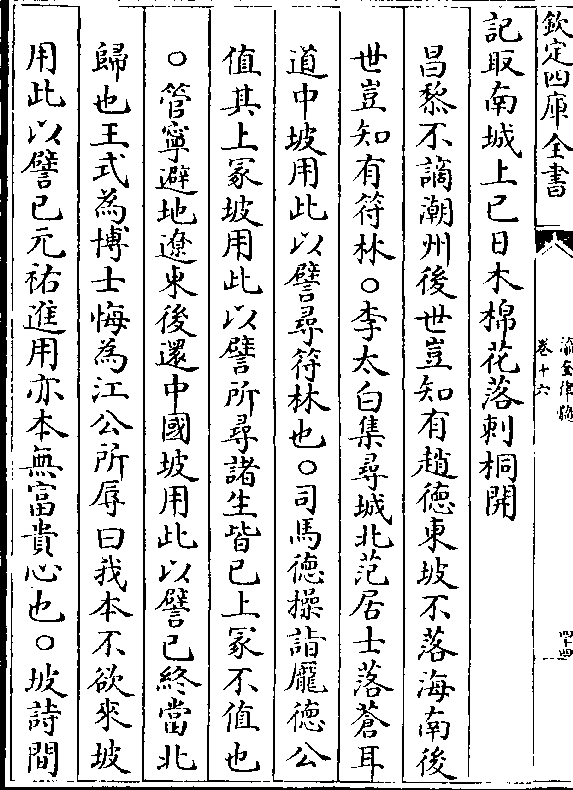 記取南城上巳日木棉花落刺桐開
昌黎不謫潮州後世豈知有趙德東坡不落海南後
世豈知有符林○李太白集尋城北范居士落蒼耳
道中坡用此以譬尋符林也○司馬德操詣龐德公
值其上冢坡用此以譬所尋諸生皆已上冢不值也
○管寧避地遼東後還中國坡用此以譬已終當北
歸也王式為博士悔為江公所辱曰我本不欲來坡
用此以譬已元祐進用亦本無富貴心也○坡詩間
欽定四庫全書
瀛奎律髓
卷十六
四十四